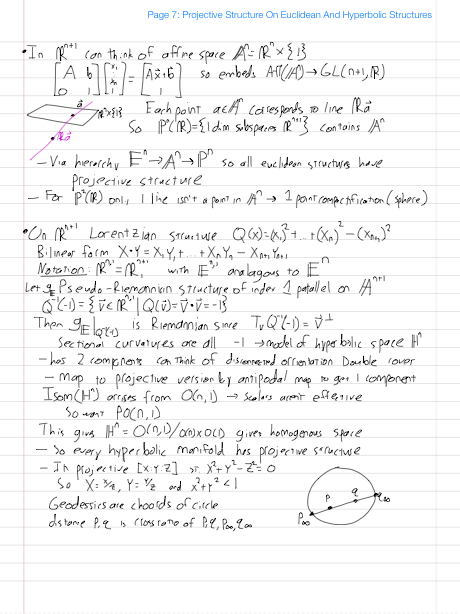 Page 7: Projective Structure On Euclidean And Hyperbolic Structures
• In ℝⁿ⁺¹ can think of affine space 𝔸ⁿ=ℝⁿ×{1}
[A b; 0 1][x₁ ⋮ xₙ 1] = [Ax⃗+b⃗; 1] so embeds Aff(𝔸ⁿ)→GL(n+1,ℝ)
a⃗ ℝⁿ×{1} Each point a∈𝔸ⁿ corresponds to line ℝa⃗
ℝa⃗ So ℙⁿ(ℝ)={1 dim subspaces ℝⁿ⁺¹} contains 𝔸ⁿ
- Via hierarchy 𝔼ⁿ→𝔸ⁿ→ℙⁿ so all euclidean structures have
projective structure
- For ℙ²(ℝ) only, 1 line isn't a point in 𝔸ⁿ → 1 point compactification (sphere)
• On ℝⁿ⁺¹ Lorentzian structure Q(x)=(x₁)²+...+(xₙ)²-(xₙ₊₁)²
Bilinear form X•Y = X₁Y₁+...+XₙYₙ - Xₙ₊₁Yₙ₊₁
Notation: ℝⁿ,¹=ℝ₁ⁿ⁺¹ with 𝔼ⁿ,¹ analagous to 𝔼ⁿ
Let g_𝔼 Pseudo-Riemannian structure of index 1 parallel on 𝔸ⁿ⁺¹
Q⁻¹(-1)={v⃗∈ℝⁿ,¹ | Q(v⃗)=v⃗•v⃗=-1}
Then g_𝔼|Q⁻¹(-1) is Riemannian since TᵥQ⁻¹(-1)=v⃗^⊥
Sectional curvatures are all -1 → model of hyperbolic space ℍⁿ
- has 2 components can think of disconnected orientation Double cover
- map to projective version by antipodal map to get 1 component
Isom(ℍⁿ) arises from O(n,1) → scalars aren't effective
so want PO(n,1)
This gives ℍⁿ=O(n,1)/O(n)×O(1) gives homogenous space
- So every hyperbolic manifold has projective structure
- In projective [X:Y:Z] st. X²+Y²-Z²=0
So X=X/Z, Y=Y/Z and x²+y²<1
Geodessics are chords of circle
distance P,q is cross ratio of P,q,P∞,q∞
P∞ P q q∞